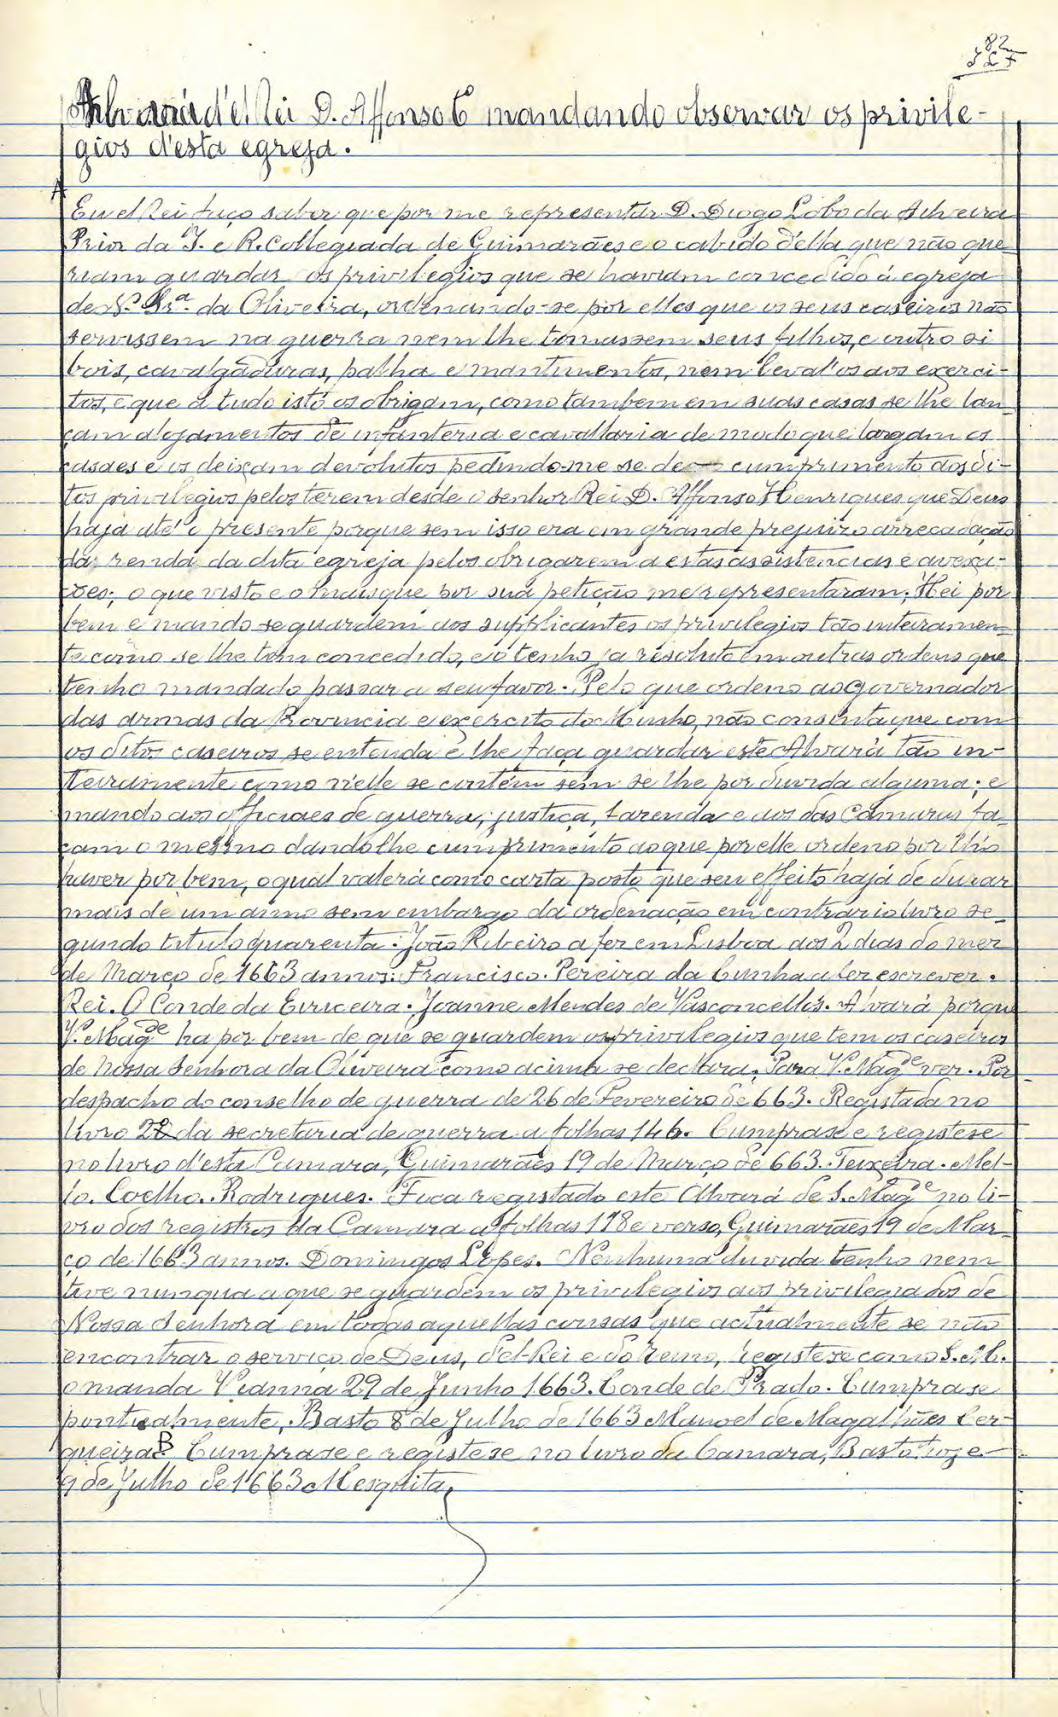 82
Alvará d'el Rei D. Affonso 6 mandando observar os privile-
gios d'esta egreja.
A
Eu el Rei faço saber que por me representar D. Diogo Lobo da Silveira
Prior da I. e R. Collegiada de Guimarães e o cabido d'ella que não que-
riam guardar os privilegios que se haviam concedido á egreja
de N. Sr.ª da Oliveira, ordenando-se por elles que os seus caseiros não
servissem na guerra nem lhe tomassem seus filhos, e outro si
bois, cavalgaduras, palha e mantimentos, nem leval'os aos exerci-
tos, e que a tudo isto os obrigam, como tambem em suas casas se lhe lan-
çam alojamentos de infanteria e cavallaria de modo que largam os
casaes e os deixam devolutos pedindo-me se de cumprimento aos di-
tos privilegios pelos terem desde o senhor Rei D. Affonso Henriques que Deus
haja até o presente porque sem isso era em grande prejuizo arrecadação
da renda da dita egreja pelos obrigarem a estas assistencias e avexa-
ções; o que visto e o mais que por sua petição me representaram; Hei por
bem e mando se guardem aos supplicantes os privilegios tão inteiramen-
te como se lhe tem concedido, e o tenho ja resoluto em outras ordens que
tenho mandado passar a seu favor. Pelo que ordeno ao governador
das armas da Provincia e exercito do Minho, não consinta que com
os ditos caseiros se entenda e lhe faça guardar este Alvará tão in-
teiramente como n'elle se contém sem se lhe por duvida alguma; e
mando aos officiaes de guerra, justiça, fazenda e aos das Camaras fa-
çam o mesmo dando lhe cumprimento ao que por elle ordeno por assim
haver por bem, o qual valerá como carta posto que seu effeito haja de durar
mais de um anno sem embargo da ordenação em contrario livro se-
gundo titulo quarenta. João Ribeiro a fez em Lisboa aos 2 dias do mez
de Março de 1663 annos. Francisco Pereira da Cunha a fez escrever.
Rei. O Conde da Ericeira. Joanne Mendes de Vasconcellos. Alvará porque
V. Mag.de ha por bem de que se guardem os privilegios que tem os caseiros
de Nossa Senhora da Oliveira como acima se declara. Para V. Mag.de ver. Por
despacho do conselho de guerra de 26 de Fevereiro de 663. Registada no
livro 22 da secretaria de guerra a folhas 146. Cumprase e registese
no livro d'esta Camara, Guimarães 19 de Março de 663. Teixeira. Mel-
lo. Coelho. Rodrigues. Fica registado este Alvará de S. Mag.de no li-
vro dos registros da Camara a folhas 118 e verso, Guimarães 19 de Mar-
ço de 1663 annos. Domingos Lopes. Nenhuma duvida tenho nem
tive nunqua a que se guardem os privilegios aos privilegiados de
Nossa Senhora em todas aquellas cousas que actualmente se não
encontrar o serviço de Deus, d'el Rei e do reino, registese como S. M.
o manda Vianna 29 de Junho 1663. Conde de Prado. Cumprase
pontualmente, Basto 8 de Julho de 1663 Manoel de Magalhães Cer-
queira B. Cumprase e registese no livro da Camara, Basto hoje
9 de Julho de 1663 Mesquita.